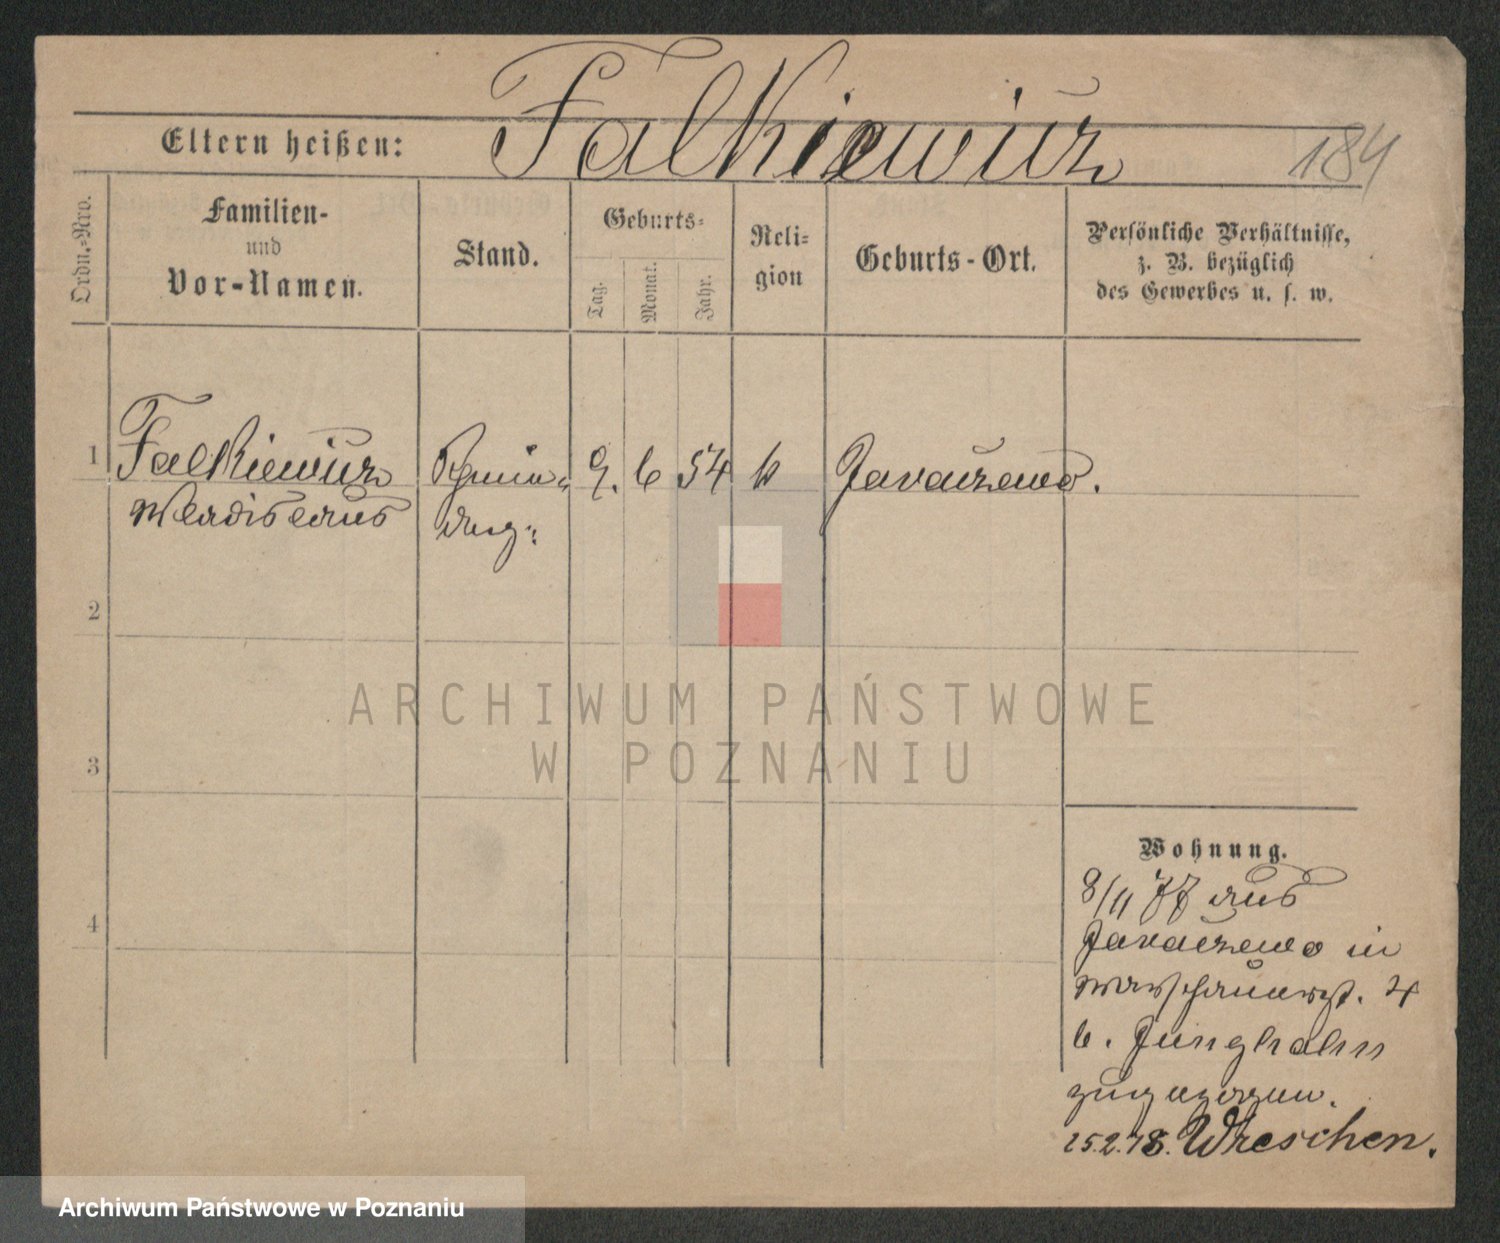 Falkiewicz
Eltern heißen:
184
Ordn.-Nro.
Familien-
und
Vor-Namen.
Stand.
Geburts-
Tag.
Monat.
Jahr.
Reli-
gion
Geburts-Ort.
Persönliche Verhältnisse,
z. B. bezüglich
des Gewerbes u. s. w.
1 Falkiewicz 9. 6 54 k Jaraczewo.
Wladislaus
2
3
4
ARCHIWUM PAŃSTWOWE
W POZNANIU
Wohnung.
8/11 77 aus
Jaraczewo in
Warschauerst. 4
b. Junghahn
zugezogen.
25.2.78. Wreschen.
Archiwum Państwowe w Poznaniu